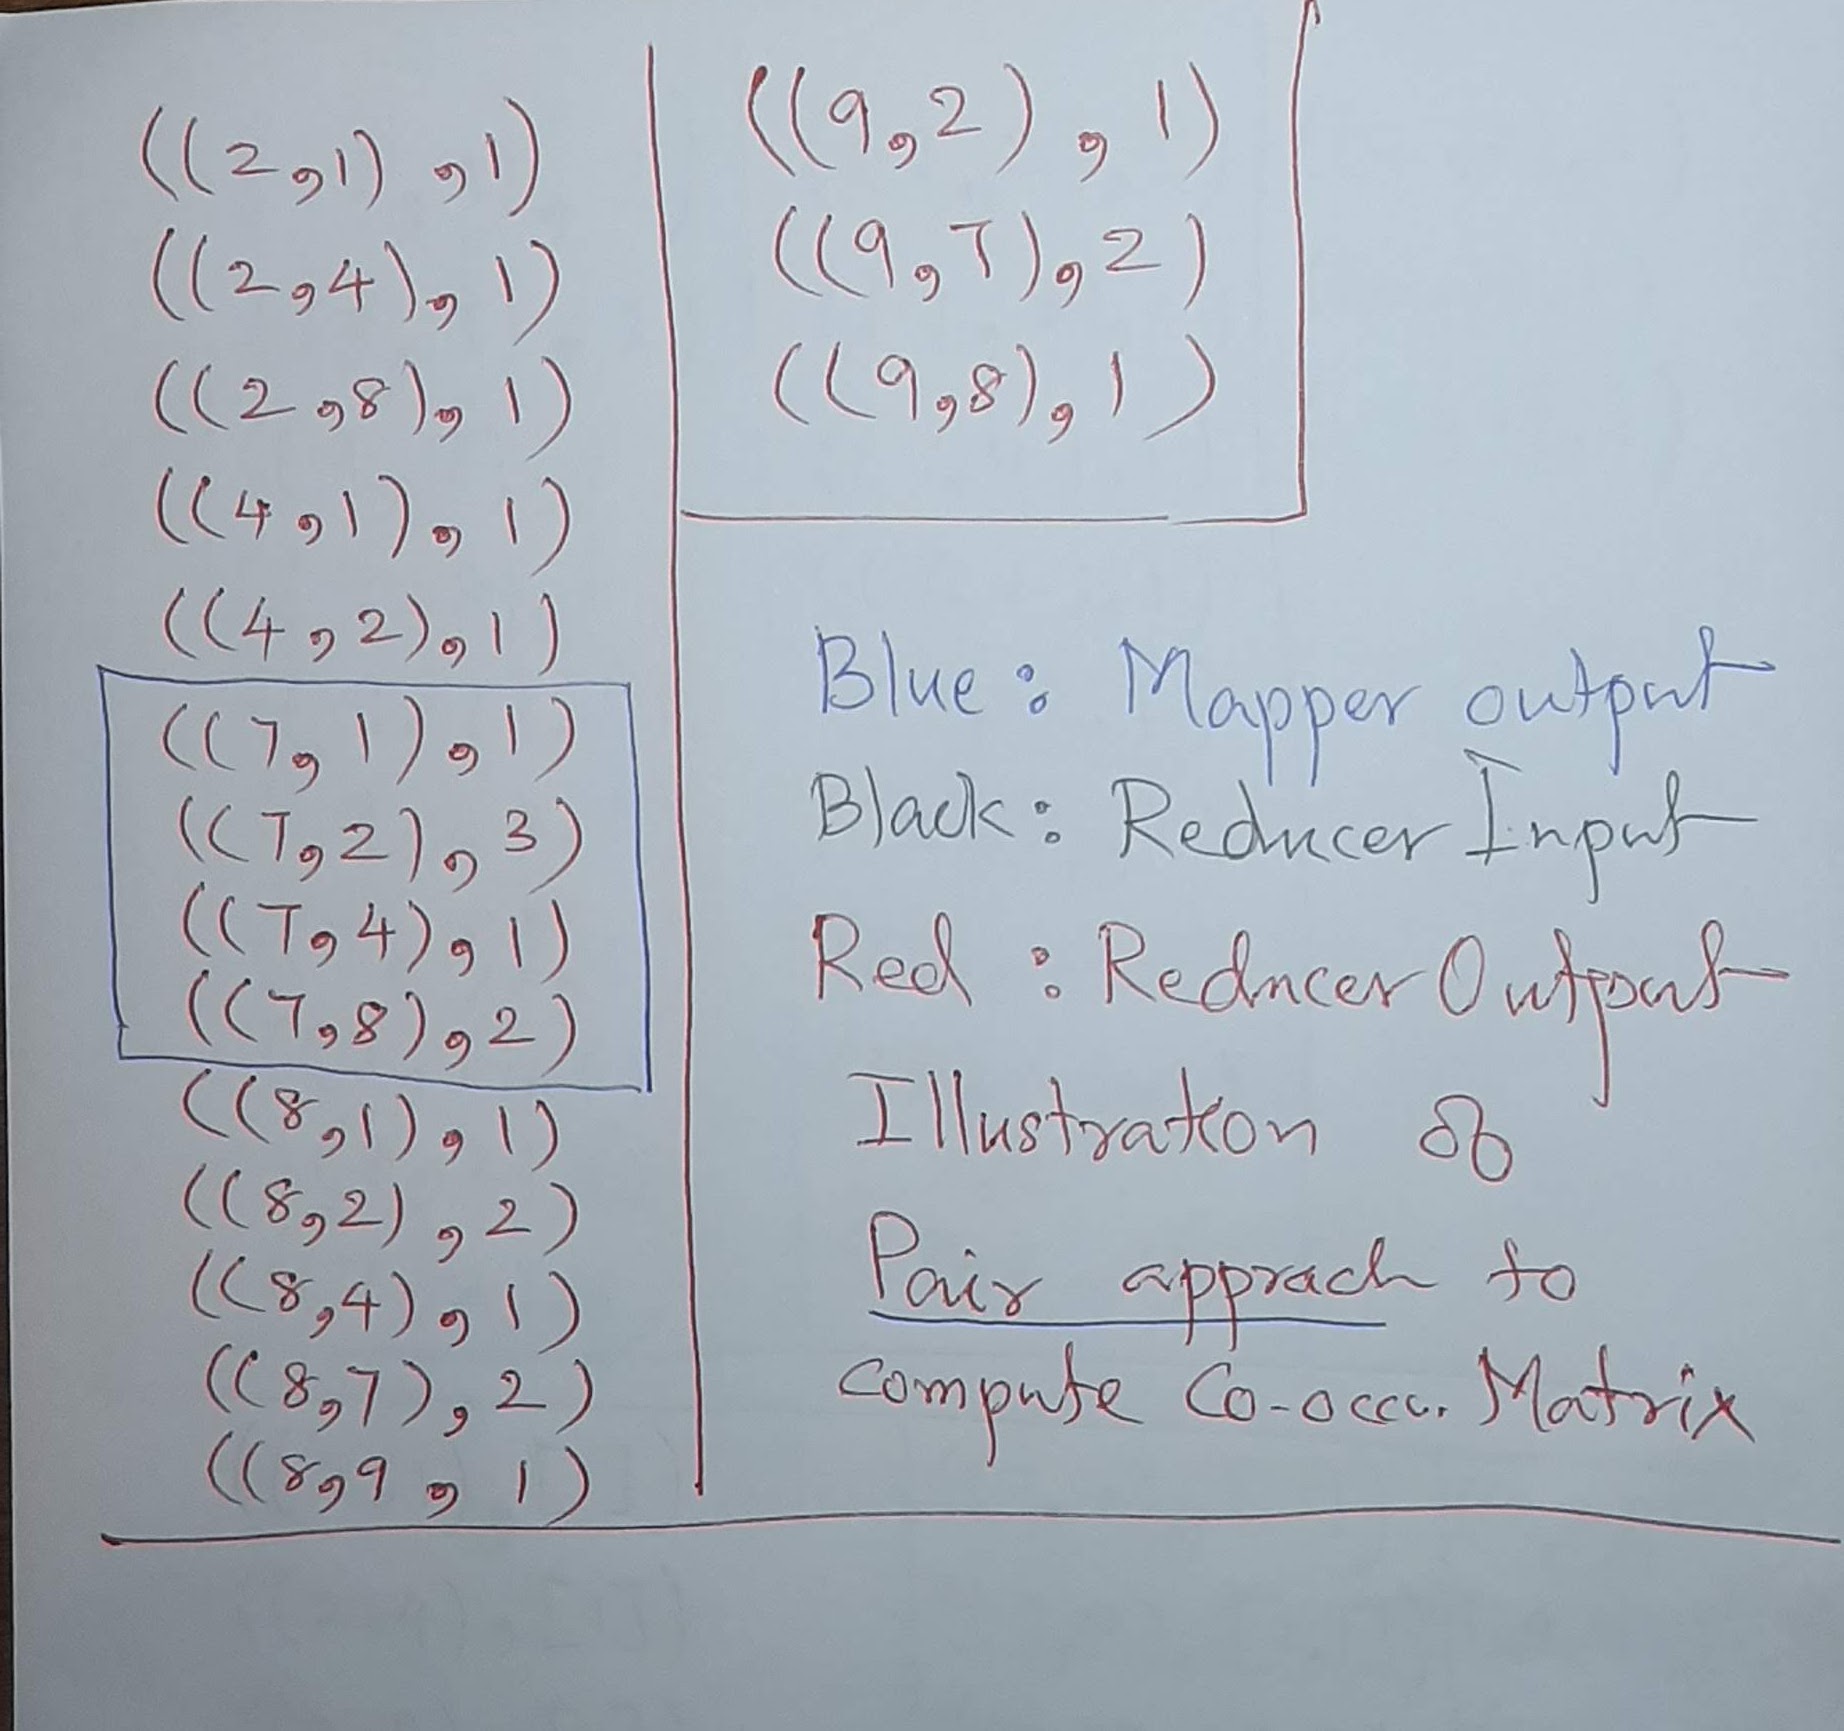 ((2,1),1)
((2,4),1)
((2,8),1)
((4,1),1)
((4,2),1)
((7,1),1)
((7,2),3)
((7,4),1)
((7,8),2)
((8,1),1)
((8,2),2)
((8,4),1)
((8,7),2)
((8,9,1)
((9,2),1)
((9,7),2)
((9,8),1)
Blue: Mapper output
Black: Reducer Input
Red: Reducer Output
Illustration of
Pair apprach to
compute Co-occu. Matrix